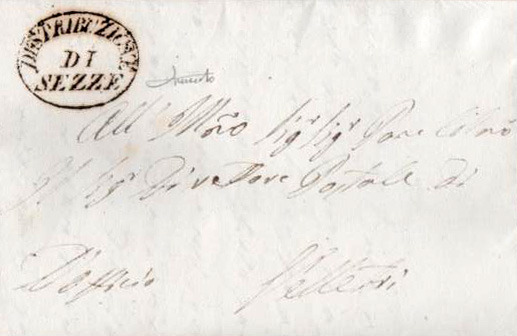 DISTRIBUZIONE
DI
SEZZE
All' Illmo Sigr Sigr Pne Colmo
Il Sigr Direttore Postale di
D'officio Velletri